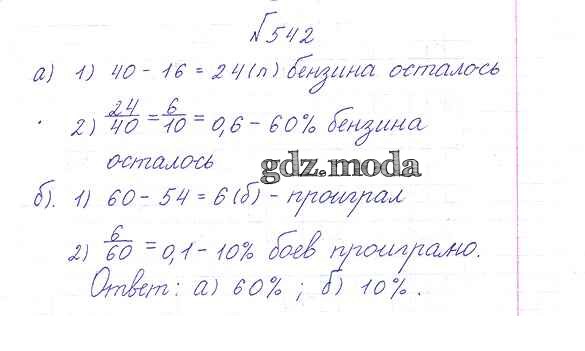 №542
а) 1) 40 - 16 = 24 (л) бензина осталось
2) 24/40 = 6/10 = 0,6 - 60% бензина
осталось
gdz.moda
б). 1) 60 - 54 = 6 (б) - проиграл
2) 6/60 = 0,1 - 10% боев проиграно.
Ответ: а) 60% ; б) 10% .